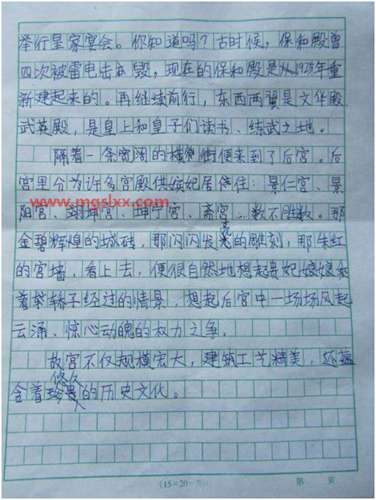 举行皇家宴会。你知道吗?古时候,保和殿曾
四次被雷电击而毁,现在的保和殿是从1925年重
新建起来的。再继续前行,东西两翼是文华殿
武英殿,是皇上和皇子们读书、练武之地。
隔着一条宽阔的横街便来到了后宫。后
宫里分为许多宫殿供嫔妃居住:景仁宫、景
阳宫、翊坤宫、坤宁宫、斋宫,数不胜数。那
金碧辉煌的城砖,那闪闪发亮的雕刻,那朱红
的宫墙,看上去,便很自然地想起贵妃娘娘
着轿子经过的情景,想起后宫中一场场风起
云涌、惊心动魄的权力之争。
故宫不仅规模宏大,建筑工艺精美,还蕴
含着悠久的历史文化。
www.mgslxx.com
(15×20=
第 页